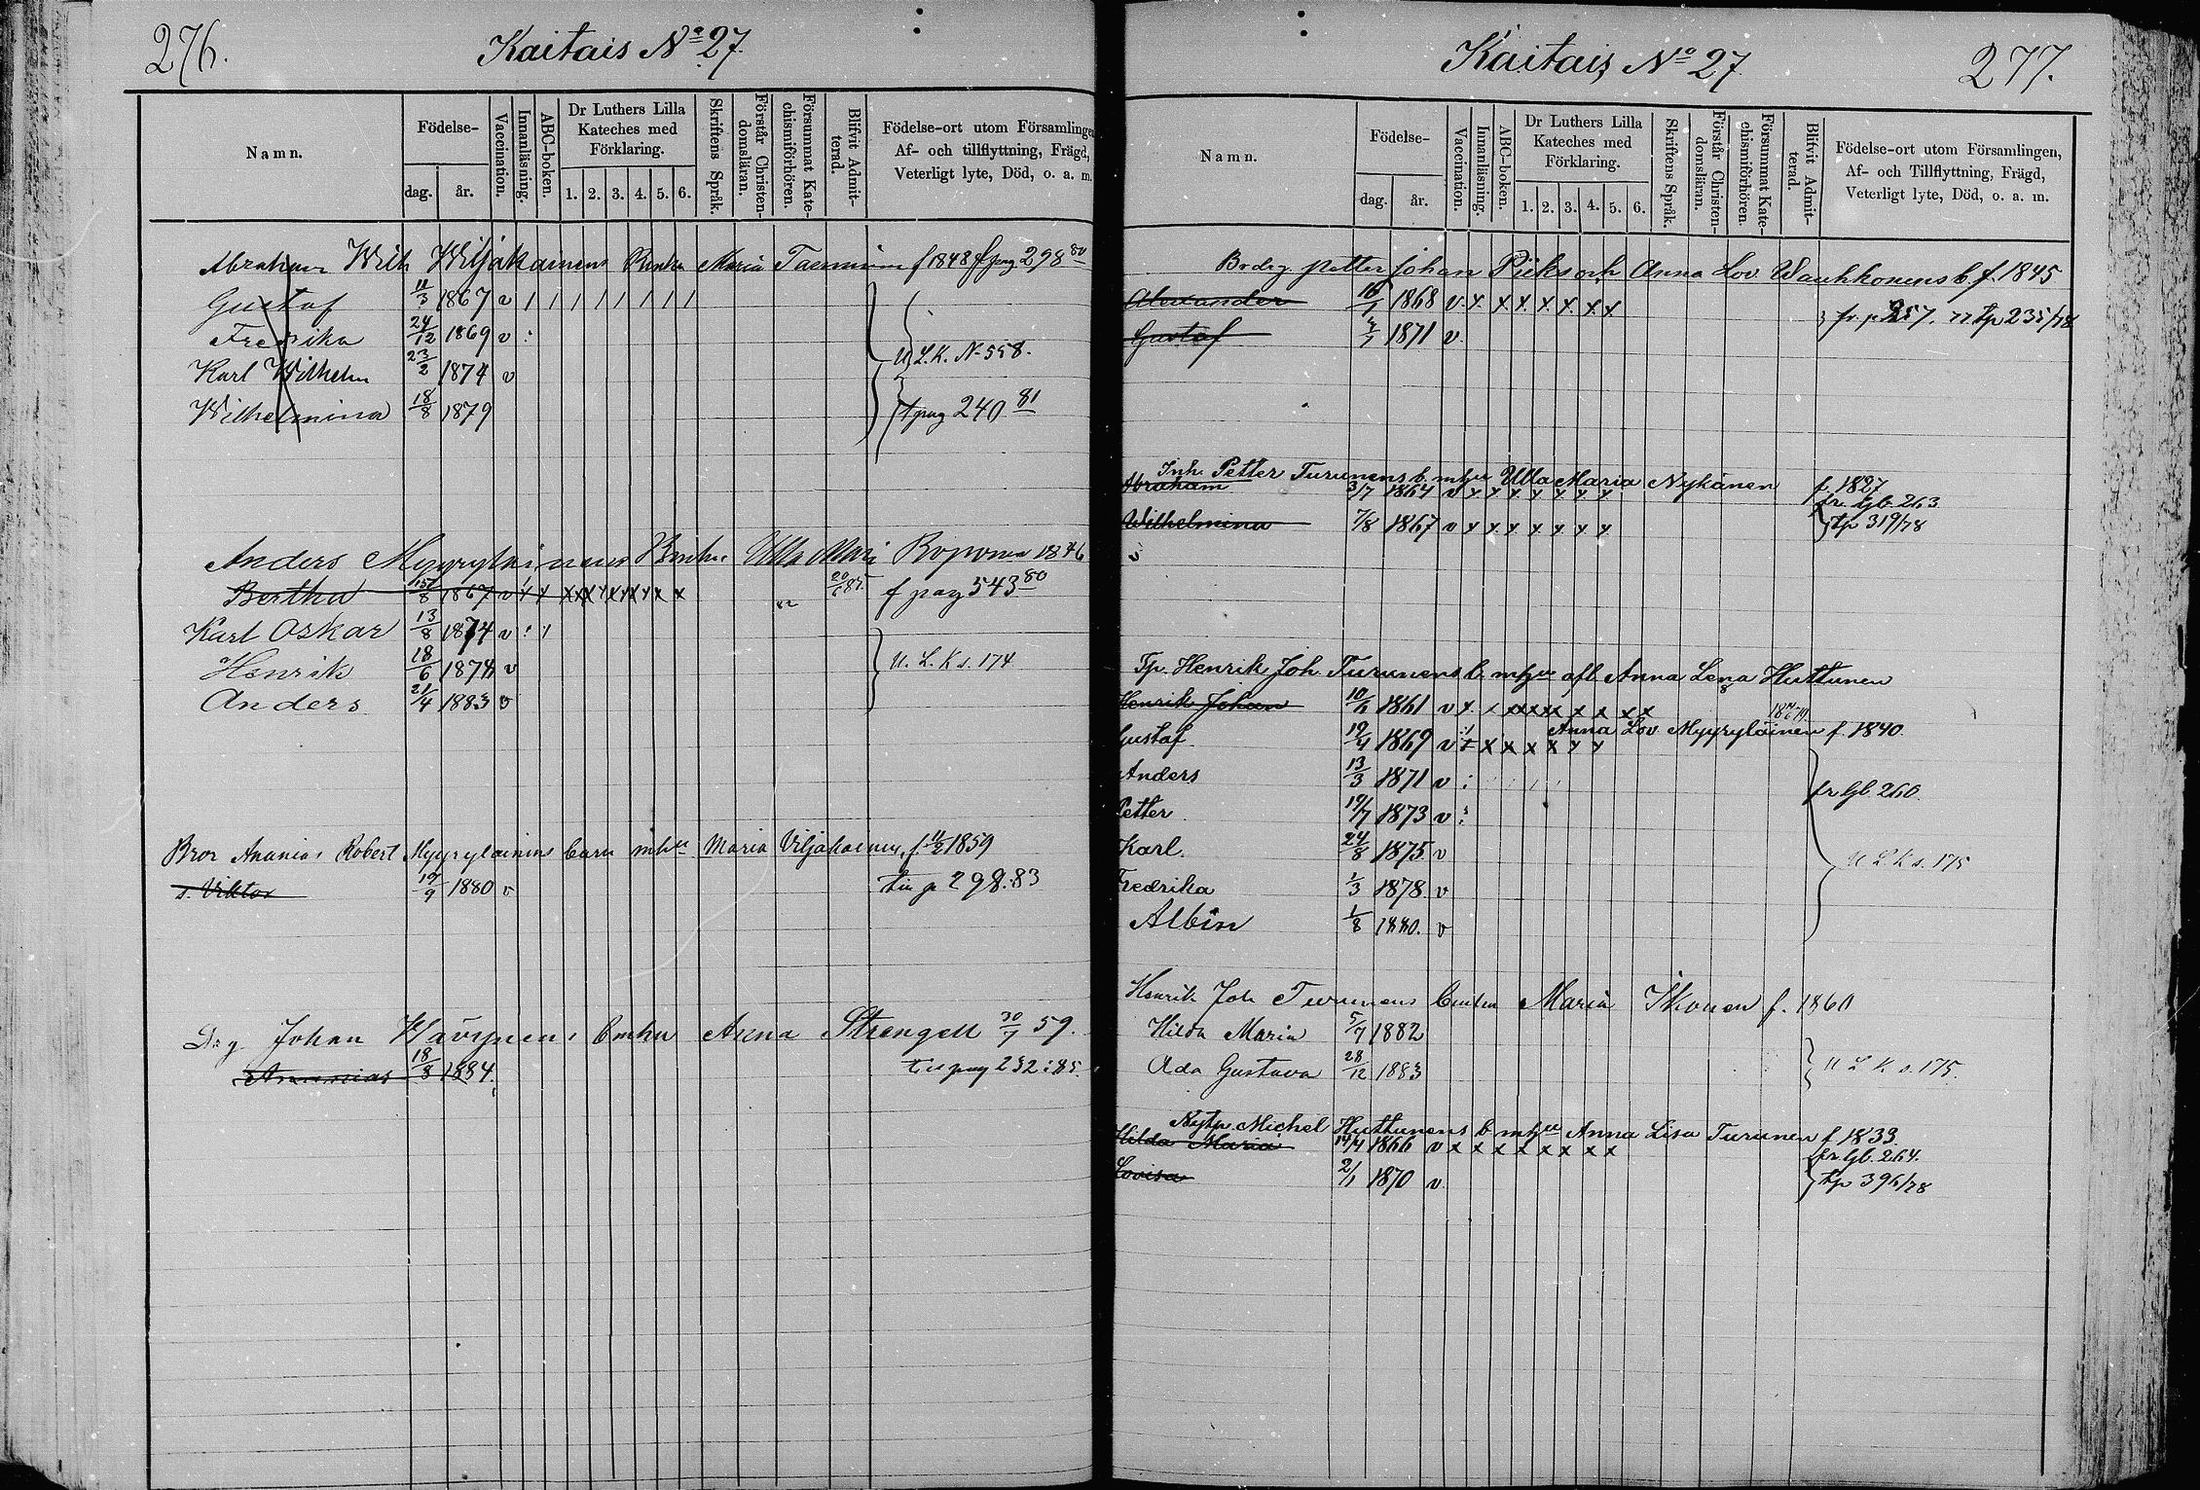 276.
Kaitais No 27.
Namn.
Födelse-
dag. år.
Vaccination.
Innanläsning.
ABC-boken.
Dr Luthers Lilla
Kateches med
Förklaring.
1. 2. 3. 4. 5. 6.
Skriftens Språk.
Förstår Christen-
domsläran.
Försummat Kate-
chismiförhören.
Blifvit Admit-
terad.
Födelse-ort utom Församlingen
Af- och tillflyttning, Frägd,
Veterligt lyte, Död, o. a. m.
Abraham Wilh Wiljakainens Maria f 1848 f pag 298 80
Gustaf 11/3 1867 v / / / / / / / /
Fredrika 24/12 1869 v
Karl Wilhelm 23/2 1874 v
U L. K. N 558.
Wilhelmina 18/8 1879
t pag 240 81
Anders Myyryläinens Ulla Mari 1846
Bertha 15/8 1867 v f pag 543 80
Karl Oskar 13/8 1874 v
Henrik 18/6 1874 v
U. L. K s. 174
Anders 21/4 1883 v
Bror Ananias Robert Myyryläinens barn mhu Maria Viljakainen f 11/2 1859
s. Viktor 19/9 1880 v till p 298.83
Drg. Johan Anna Strengell 30/7 59.
Ananias 18/8 1884. till pag 232:85.
Kaitais No 27
277.
Namn.
Födelse-
dag. år.
Vaccination.
Innanläsning.
ABC-boken.
Dr Luthers Lilla
Kateches med
Förklaring.
1. 2. 3. 4. 5. 6.
Skriftens Språk.
Förstår Christen-
domsläran.
Försummat Kate-
chismiförhören.
Blifvit Admit-
terad.
Födelse-ort utom Församlingen,
Af- och Tillflyttning, Frägd,
Veterligt lyte, Död, o. a. m.
Petter Johan och Anna Lov. Wauhkonens b. f. 1845
Alexander 1868 v x x x x x x x x
257. tp 235/78
Gustaf 1871 v
Inh. Petter Turunens b. mhu Ulla Maria Nykänen f. 1827
Abraham 3/7 1864 v x x x x x x x
fr. Gb. 263
Wilhelmina 7/8 1867 v x x x x x x x
tp 319/78
Tp. Henrik Joh Turunens b. mhu afl. Anna Lena Huttunen
Henrik Johan 1861 v x
Anna Lov Myyryläinen f. 1840.
Gustaf 19/4 1869 v x x x x x x x
Anders 13/3 1871 v
fr Gb. 260.
Petter 19/7 1873 v
Karl. 24/8 1875 v
U L K s. 175
Fredrika 1/3 1878 v
Albin 1/8 1880. v
Henrik Joh Turunens Maria Ikonen f. 1860
Hilda Maria 5/7 1882
Ada Gustava 28/12 1883
U L K s. 175.
Michel Huttunens b mhu Anna Lisa Turunen f 1833
Hilda Maria 1866 v x x x x x x x x
fr. Gb. 264.
Lovisa 2/1 1870 v
tp 396/78